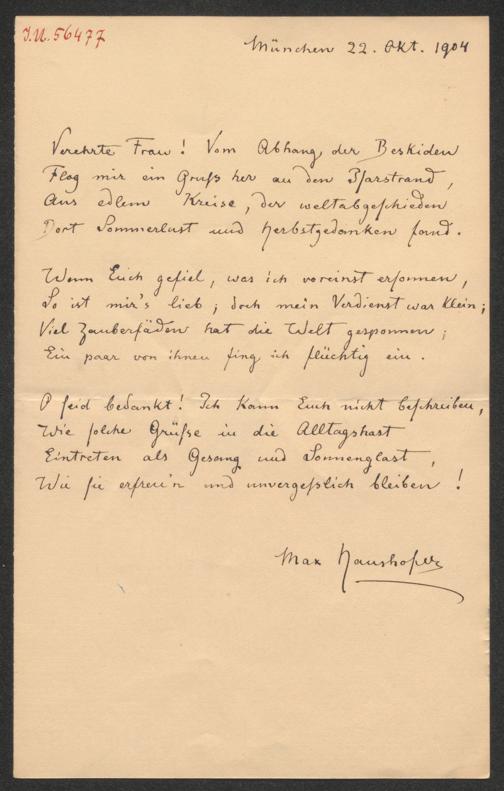 I.N. 56477
München 22. Okt. 1904
Verehrte Frau! Vom Abhang der Beskiden
Flog mir ein Gruß her an den Isarstrand,
Aus edlem Kreise, der weltabgeschieden
Dort Sommerlust und Herbstgedanken fand.
Wenn Euch gefiel, was ich voreinst ersonnen,
So ist mir's lieb; doch mein Verdienst war klein;
Viel Zauberfäden hat die Welt gesponnen;
Ein paar von ihnen fing ich flüchtig ein.
O seid bedankt! Ich kann Euch nicht beschreiben,
Wie solche Grüße in die Alltagshast
Eintreten als Gesang und Sonnenglast,
Wie sie erfreu'n und unvergeßlich bleiben!
Max Haushofer